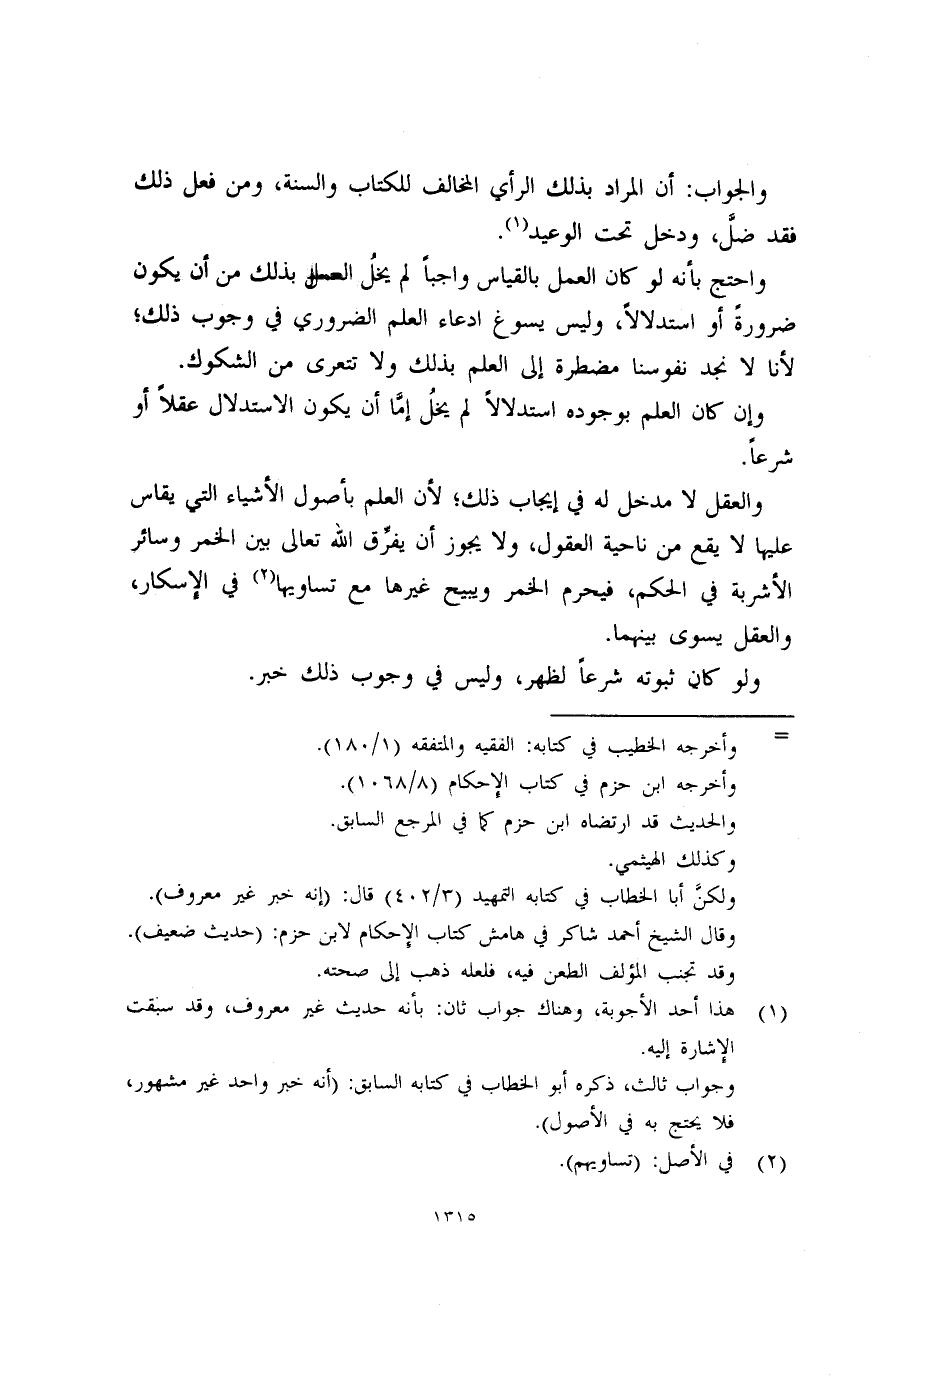 والجواب: أن المراد بذلك الرأي المخالف للكتاب والسنة، ومن فعل ذلك
فقد ضلَّ، ودخل تحت الوعيد(١).
واحتج بأنه لو كان العمل بالقياس واجباً لم يخلُ العمل بذلك من أن يكون
ضرورةً أو استدلالاً، وليس يسوغ ادعاء العلم الضروري في وجوب ذلك؛
لأنا لا نجد نفوسنا مضطرة إلى العلم بذلك ولا تتعرى من الشكوك.
وإن كان العلم بوجوده استدلالاً لم يخلُ إمَّا أن يكون الاستدلال عقلاً أو
شرعاً.
والعقل لا مدخل له في إيجاب ذلك؛ لأن العلم بأصول الأشياء التي يقاس
عليها لا يقع من ناحية العقول، ولا يجوز أن يفرِّق الله تعالى بين الخمر وسائر
الأشربة في الحكم، فيحرم الخمر ويبيح غيرها مع تساويها(٢) في الإسكار،
والعقل يسوى بينهما.
ولو كان ثبوته شرعاً لظهر، وليس في وجوب ذلك خبر.
= وأخرجه الخطيب في كتابه: الفقيه والمتفقه (١/١٨٠).
وأخرجه ابن حزم في كتاب الإحكام (٨/١٠٦٨).
والحديث قد ارتضاه ابن حزم كما في المرجع السابق.
وكذلك الهيثمي.
ولكنَّ أبا الخطاب في كتابه التمهيد (٣/٤٠٢) قال: (إنه خبر غير معروف).
وقال الشيخ أحمد شاكر في هامش كتاب الإحكام لابن حزم: (حديث ضعيف).
وقد تجنب المؤلف الطعن فيه، فلعله ذهب إلى صحته.
(١) هذا أحد الأجوبة، وهناك جواب ثان: بأنه حديث غير معروف، وقد سبقت
الإشارة إليه.
وجواب ثالث، ذكره أبو الخطاب في كتابه السابق: (أنه خبر واحد غير مشهور،
فلا يحتج به في الأصول).
(٢) في الأصل: (تساويهم).
١٣١٥